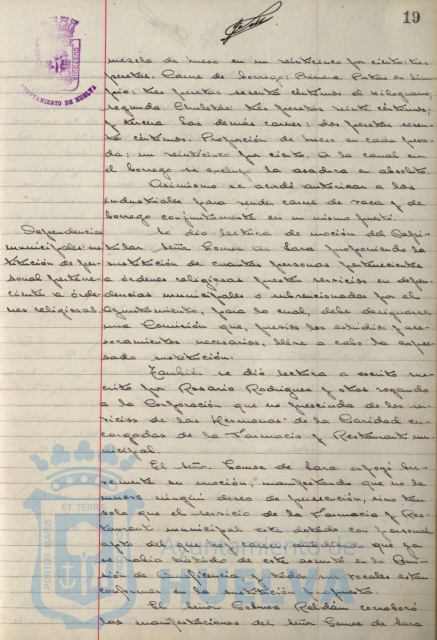 19
AYUNTAMIENTO DE HUELVA
mezcla de hueso en un veinticinco por ciento: tres
pesetas. Carne de borrego: Primera. Patas en lim
pio: tres pesetas sesenta céntimos el kilogramo;
segunda. Chuletas: tres pesetas veinte céntimos;
y tercera las demás carnes: dos pesetas sesen
ta céntimos. Proporción de hueso en cada para
da: un veinticinco por ciento. A la canal en
el borrego se excluye la asadura en absoluto.
Asimismo se acordó autorizar a los
industriales para vender carne de vaca y de
borrego conjuntamente en un mismo puesto.
Dependencias
municipales: sus
titución de per
sonal pertene
ciente a órde
nes religiosas.
Se dió lectura de moción del Capi
tular Señor Gomez de Lara proponiendo la
sustitución de cuantas personas pertenecientes
a órdenes religiosas presten servicios en depen
dencias municipales o subvencionadas por el
Ayuntamiento, para lo cual, debe designarse
una Comisión que, previos los estudios y ase
soramientos necesarios, lleve a cabo la expre
sada sustitución.
También se dió lectura a escrito sus
crito por Rosario Rodriguez y otras rogando
a la Corporación que no prescinda de los ser
vicios de las Hermanas de la Caridad en
cargadas de la Farmacia y Restaurant mu
nicipal.
El Señor Gomez de Lara apoyó bre
vemente su moción, manifestando que no le
mueve ningún deseo de persecución, sino tan
solo que el servicio de la Farmacia y Res
taurant municipal esté dotado con personal
apto del que no van a que ya
se había tratado de este asunto en la Comi
sión de Beneficencia y todos sus vocales están
conformes en la sustitución propuesta.
El Señor Gomez Roldán corroboró
las manifestaciones del Señor Gomez de Lara
Ayuntamiento de
HUELVA
PORTUS MARIS ET TERRAE CUSTODIA